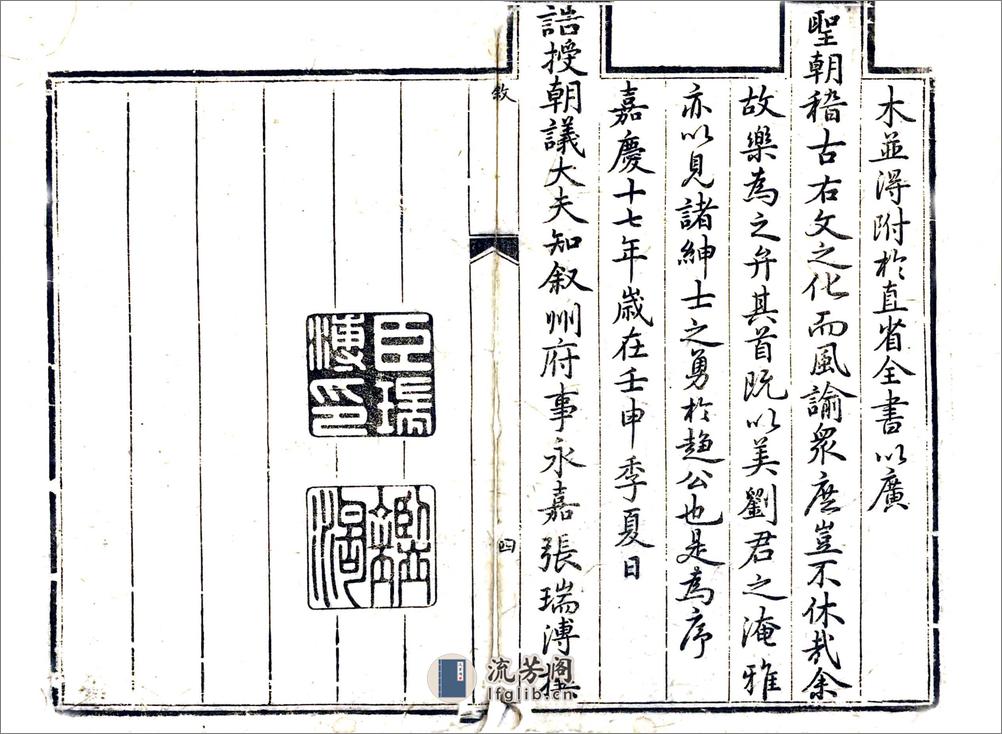 木並得附於直省全書以廣
聖朝稽古右文之化而風諭衆庶豈不休哉余
故樂為之弁其首既以美劉君之淹雅
亦以見諸紳士之勇於趨公也是為序
嘉慶十七年歲在壬申季夏日
誥授朝議大夫知叙州府事永嘉張瑞溥撰
敘
四
臣瑞
溥印
流芳阁
lfglib.cn